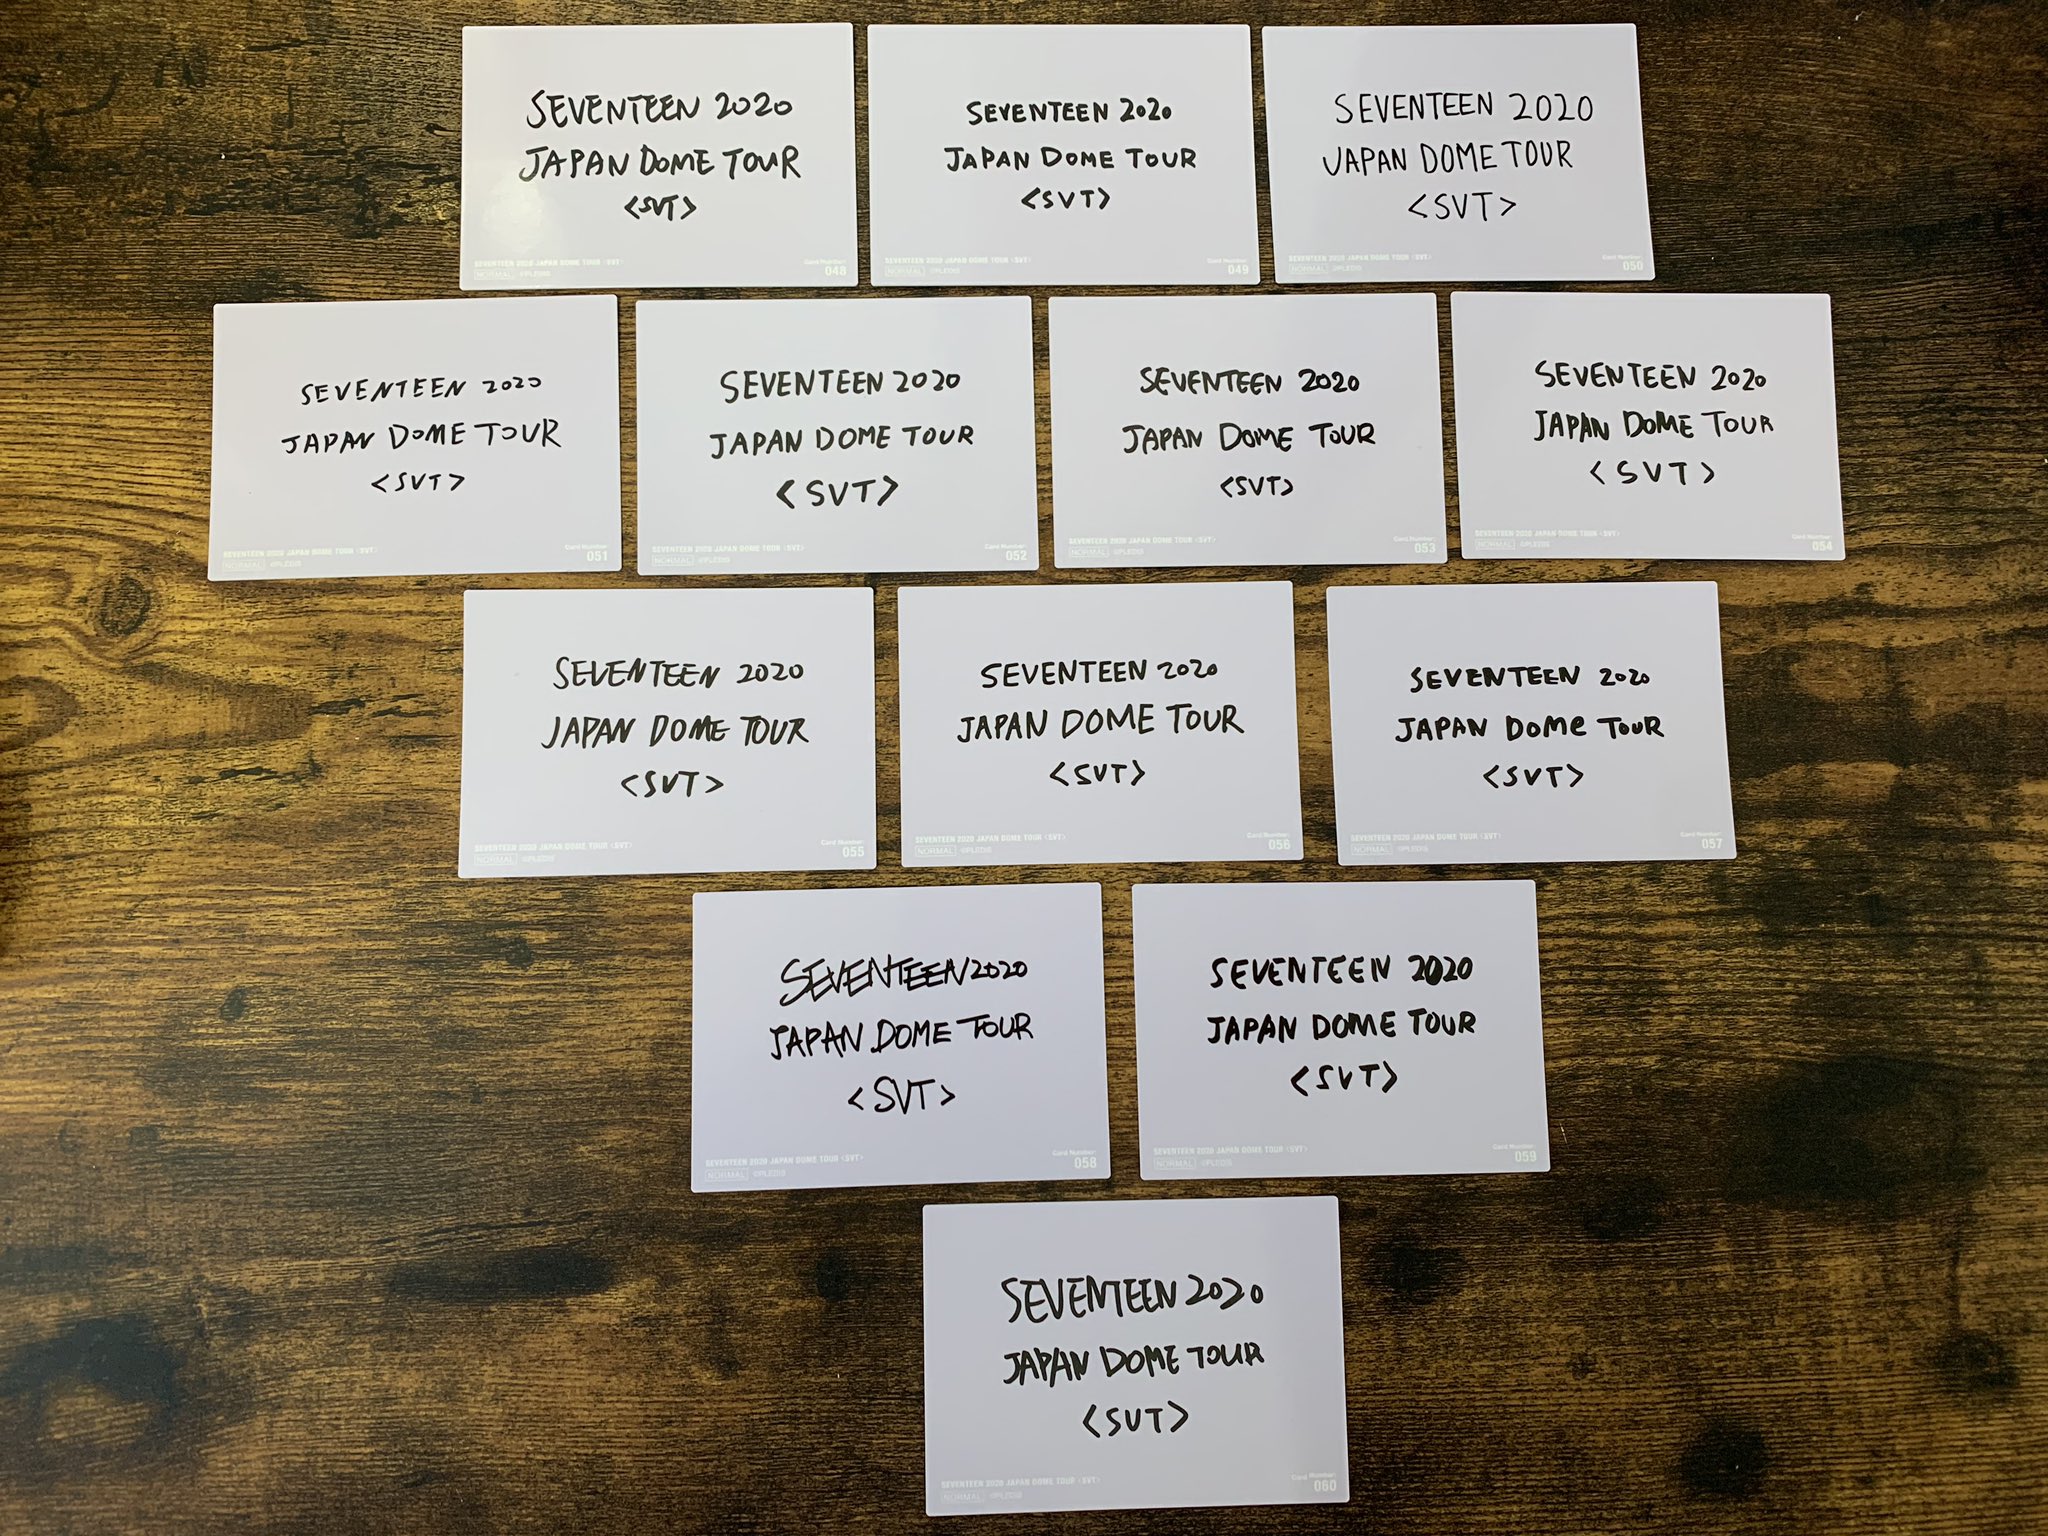 SEVENTEEN 2020
JAPAN DOME TOUR
<SVT>
SEVENTEEN 2020 JAPAN DOME TOUR <SVT>
NORMAL ©PLEDIS
Card Number:
048
SEVENTEEN 2020
JAPAN DOME TOUR
<SVT>
SEVENTEEN 2020 JAPAN DOME TOUR <SVT>
NORMAL ©PLEDIS
Card Number:
049
SEVENTEEN 2020
JAPAN DOME TOUR
<SVT>
SEVENTEEN 2020 JAPAN DOME TOUR <SVT>
NORMAL ©PLEDIS
Card Number:
050
SEVENTEEN 2020
JAPAN DOME TOUR
<SVT>
SEVENTEEN 2020 JAPAN DOME TOUR <SVT>
NORMAL ©PLEDIS
Card Number:
051
SEVENTEEN 2020
JAPAN DOME TOUR
<SVT>
SEVENTEEN 2020 JAPAN DOME TOUR <SVT>
NORMAL ©PLEDIS
Card Number:
052
SEVENTEEN 2020
JAPAN DOME TOUR
<SVT>
SEVENTEEN 2020 JAPAN DOME TOUR <SVT>
NORMAL ©PLEDIS
Card Number:
053
SEVENTEEN 2020
JAPAN DOME TOUR
<SVT>
SEVENTEEN 2020 JAPAN DOME TOUR <SVT>
NORMAL ©PLEDIS
Card Number:
054
SEVENTEEN 2020
JAPAN DOME TOUR
<SVT>
SEVENTEEN 2020 JAPAN DOME TOUR <SVT>
NORMAL ©PLEDIS
Card Number:
055
SEVENTEEN 2020
JAPAN DOME TOUR
<SVT>
SEVENTEEN 2020 JAPAN DOME TOUR <SVT>
NORMAL ©PLEDIS
Card Number:
056
SEVENTEEN 2020
JAPAN Dome TOUR
<SVT>
SEVENTEEN 2020 JAPAN DOME TOUR <SVT>
NORMAL ©PLEDIS
Card Number:
057
SEVENTEEN 2020
JAPAN DOME TOUR
<SVT>
SEVENTEEN 2020 JAPAN DOME TOUR <SVT>
NORMAL ©PLEDIS
Card Number:
058
SEVENTEEN 2020
JAPAN DOME TOUR
<SVT>
SEVENTEEN 2020 JAPAN DOME TOUR <SVT>
NORMAL ©PLEDIS
Card Number:
059
SEVENTEEN 2020
JAPAN DOME TOUR
<SVT>
SEVENTEEN 2020 JAPAN DOME TOUR <SVT>
NORMAL ©PLEDIS
Card Number:
060